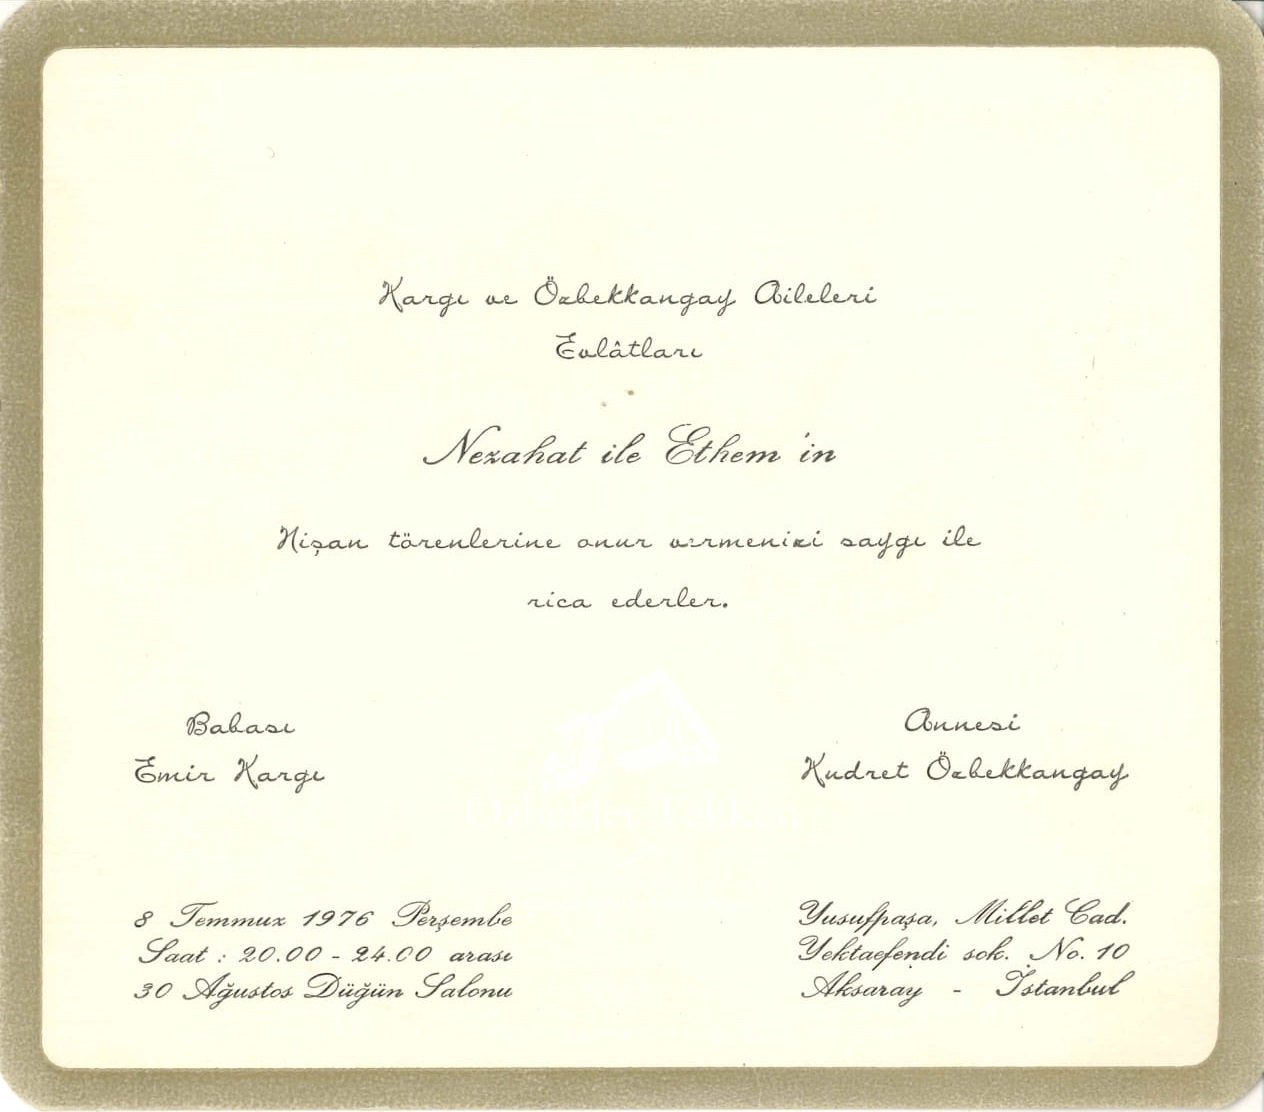 Kargı ve Özbekkangay Aileleri
Evlâtları
Nezahat ile Ethem'in
Nişan törenlerine onur vermenizi saygı ile
rica ederler.
Babası
Emir Kargı
Annesi
Kudret Özbekkangay
8 Temmuz 1976 Perşembe
Saat : 20.00 - 24.00 arası
30 Ağustos Düğün Salonu
Yusufpaşa, Millet Cad.
Yektaefendi sok. No. 10
Aksaray - İstanbul